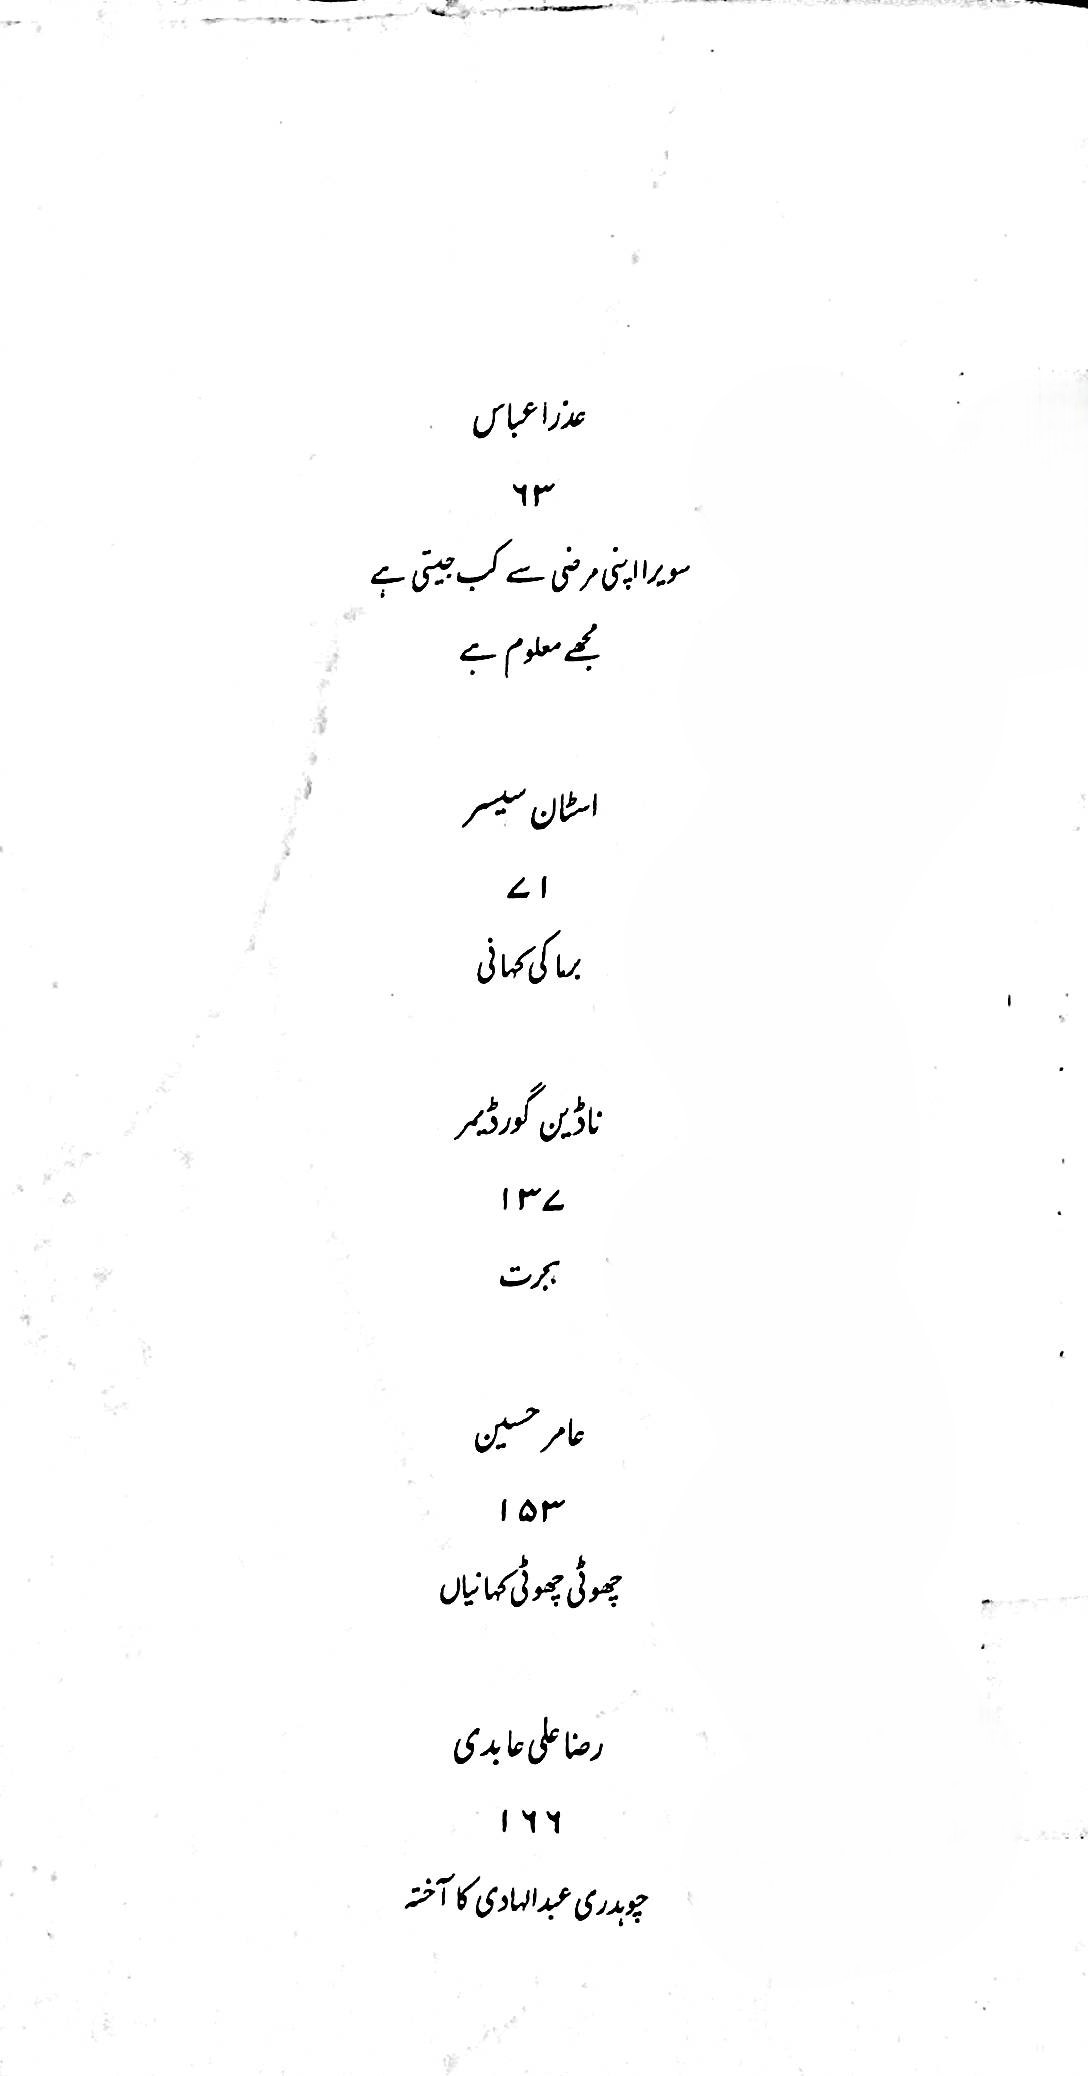 عذرا عباس
۶۳
سویرا اپنی مرضی سے کب جیتی ہے
مجھے معلوم ہے
اسٹان سیسر
۷۱
برما کی کہانی
ناڈین گورڈیمر
۱۳۷
ہجرت
عامر حسین
۱۵۳
چھوٹی چھوٹی کہانیاں
رضا علی عابدی
۱۶۶
چوہدری عبدالہادی کا آختہ